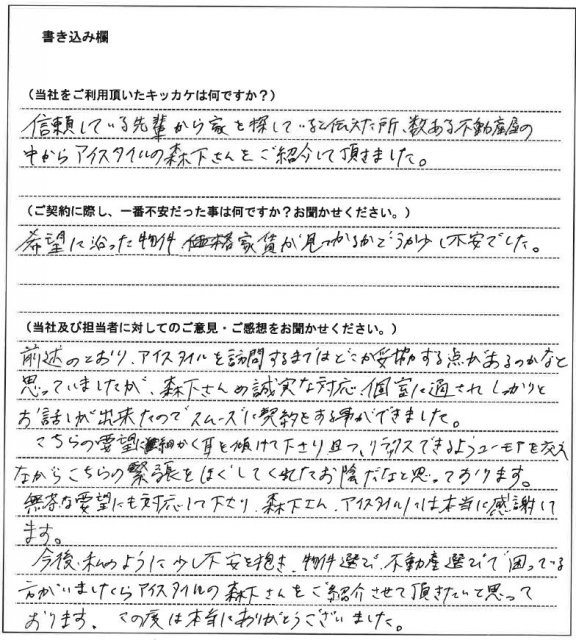 書き込み欄
（当社をご利用頂いたキッカケは何ですか？）
信頼している先輩から家を探していると伝えた所、数ある不動産屋の
中からアイスタイルの森下さんをご紹介して頂きました。
（ご契約に際し、一番不安だった事は何ですか？お聞かせください。）
希望に沿った物件、価格家賃が見つかるかどうか少し不安でした。
（当社及び担当者に対してのご意見・ご感想をお聞かせください。）
前述のとおり、アイスタイルを訪問するまではどこか妥協する点があるのかなと
思っていましたが、森下さんの誠実な対応、個室に通されしっかりと
お話しが出来たのでスムーズに契約をする事ができました。
こちらの要望に細かく耳を傾けて下さり且つ、リラックスできるようユーモアを交え
ながらこちらの緊張をほぐしてくれたお陰だなと思っております。
無茶な要望にも対応して下さり、森下さん、アイスタイルには本当に感謝して
ます。
今後、私のように少し不安を抱き、物件選び、不動産選びで困っている
方がいましたらアイスタイルの森下さんをご紹介させて頂きたいと思って
おります。この度は本当にありがとうございました。